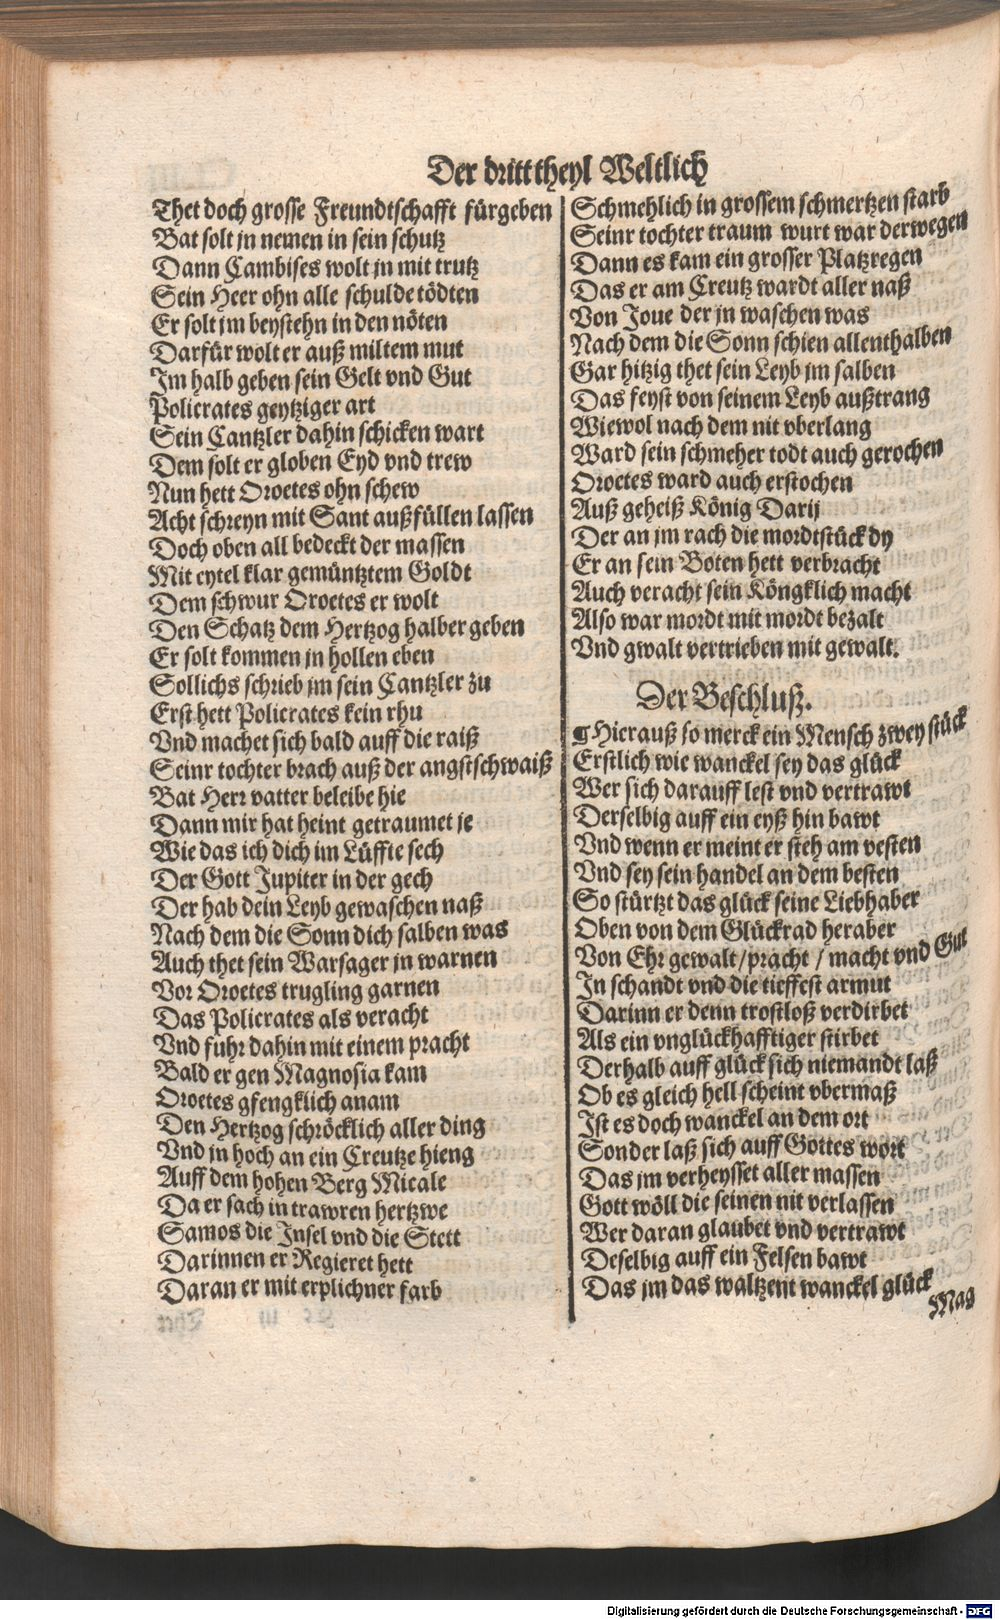 Der dritt theyl Weltlich
Thet doch grosse Freundtschafft fürgeben
Bat solt jn nemen in sein schutz
Dann Cambises wolt jn mit trutz
Sein Heer ohn alle schulde tödten
Er solt jm beystehn in den nöten
Darfür wolt er auß miltem mut
Im halb geben sein Gelt vnd Gut
Policrates geytziger art
Sein Cantzler dahin schicken wart
Dem solt er globen Eyd vnd trew
Nun hett Oroetes ohn schew
Acht schreyn mit Sant außfüllen lassen
Doch oben all bedeckt der massen
Mit eytel klar gemüntztem Goldt
Dem schwur Oroetes er wolt
Den Schatz dem Hertzog halber geben
Er solt kommen jn hollen eben
Sollichs schrieb jm sein Cantzler zu
Erst hett Policrates kein rhu
Vnd machet sich bald auff die raiß
Seinr tochter brach auß der angstschwaiß
Bat Herr vatter beleibe hie
Dann mir hat heint getraumet je
Wie das ich dich im Lüffte sech
Der Gott Jupiter in der gech
Der hab dein Leyb gewaschen naß
Nach dem die Sonn dich salben was
Auch thet sein Warsager jn warnen
Vor Oroetes trugling garnen
Das Policrates als veracht
Vnd fuhr dahin mit einem pracht
Bald er gen Magnosia kam
Oroetes gfengklich anam
Den Hertzog schröcklich aller ding
Vnd jn hoch an ein Creutze hieng
Auff dem hohen Berg Micale
Da er sach in trawren hertzwe
Samos die Insel vnd die Stett
Darinnen er Regieret hett
Daran er mit erplichner farb
Schmehlich in grossem schmertzen starb
Seinr tochter traum wurt war derwegen
Dann es kam ein grosser Platzregen
Das er am Creutz wardt aller naß
Von Joue der jn waschen was
Nach dem die Sonn schien allenthalben
Gar hitzig thet sein Leyb jm salben
Das feyst von seinem Leyb außtrang
Wiewol nach dem nit vberlang
Ward sein schmeher todt auch gerochen
Oroetes ward auch erstochen
Auß geheiß König Darij
Der an jm rach die mordtstück dy
Er an sein Boten hett verbracht
Auch veracht sein Köngklich macht
Also war mordt mit mordt bezalt
Vnd gwalt vertrieben mit gewalt.
Der Beschluß.
¶ Hierauß so merck ein Mensch zwey stück
Erstlich wie wanckel sey das glück
Wer sich darauff lest vnd vertrawt
Derselbig auff ein eyß hin bawt
Vnd wenn er meint er steh am vesten
Vnd sey sein handel an dem besten
So stürtzt das glück seine Liebhaber
Oben von dem Glückrad heraber
Von Ehr gewalt/pracht / macht vnd Gut
In schandt vnd die tieffest armut
Darinn er denn trostloß verdirbet
Als ein vnglückhafftiger stirbet
Derhalb auff glück sich niemandt laß
Ob es gleich hell scheint vbermaß
Ist es doch wanckel an dem ort
Sonder laß sich auff Gottes wort
Das jm verheysset aller massen
Gott wöll die seinen nit verlassen
Wer daran glaubet vnd vertrawt
Deselbig auff ein Felsen bawt
Das jm das waltzent wanckel glück
Mag
Digitalisierung gefördert durch die Deutsche Forschungsgemeinschaft - DFG